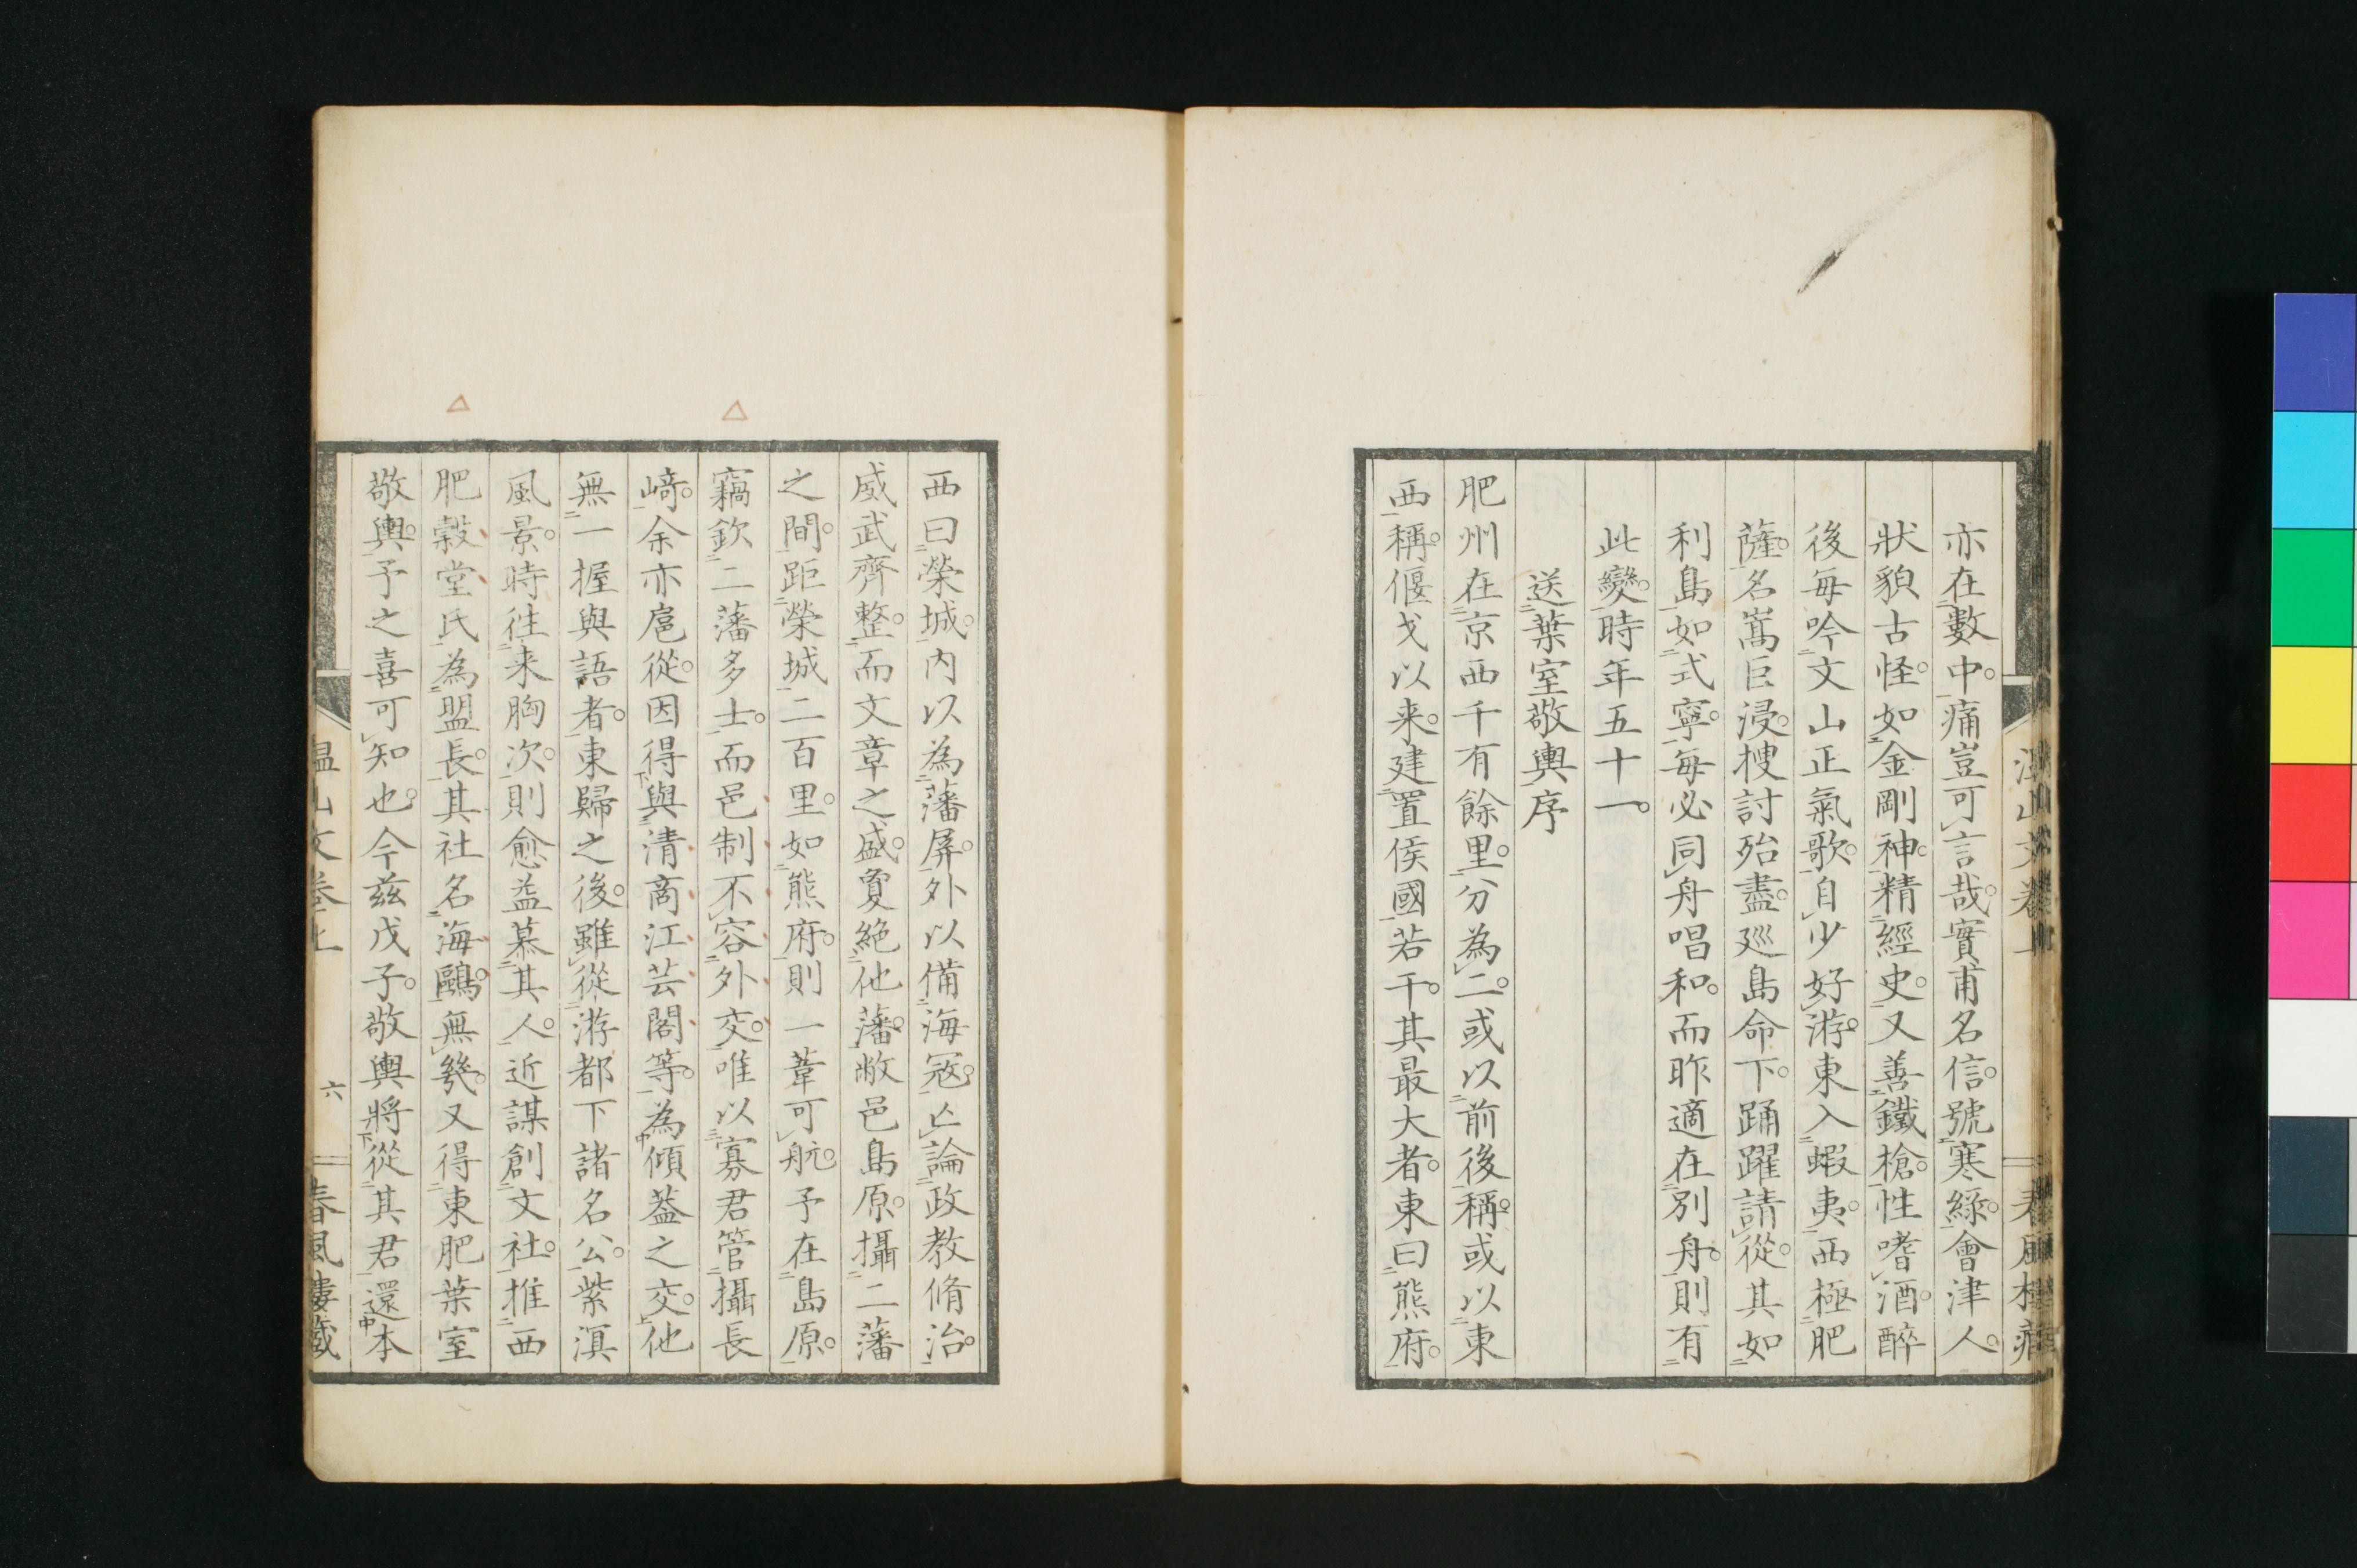 亦在數中。痛豈可言哉。實甫名信。號寒綠。會津人。
狀貌古怪。如金剛神。精經史。又善鐵槍。性嗜酒。醉
後每吟文山正氣歌。自少好游。東入蝦夷。西極肥
薩。名嵩巨浸。搜討殆盡。巡島命下。踊躍請從。其如
利島。如式寧。每必同舟唱和。而昨適在別舟。則有
此變。時年五十一。
送葉室敬輿序
肥州在京西千有餘里。分為二。或以前後稱。或以東
西稱。偃戈以来。建置侯國若干。其最大者。東曰熊府。
西曰榮城。內以為藩屏。外以備海冦。亡論政教脩治。
威武齊整。而文章之盛。敻絕他藩。敝邑島原。攝二藩
之間。距榮城二百里。如熊府。則一葦可航。予在島原。
竊欽二藩多士。而邑制不容外交。唯以寡君管攝長
﨑。余亦扈從。因得與清商江芸閣等。為傾葢之交。他
無一握與語者。東歸之後。雖從游都下諸名公。紫溟
風景。時徃来胸次。則愈益慕其人。近謀創文社。推西
肥穀堂氏為盟長。其社名海鷗。無幾。又得東肥葉室
敬輿。予之喜可知也。今茲戊子。敬輿將從其君還本
温山文卷上
六
春風樓藏